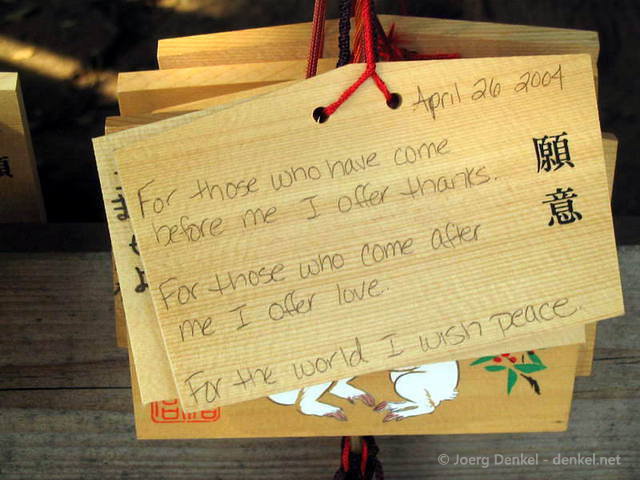 April 26 2004
願意
For those who have come
before me I offer thanks.
For those who come after
me I offer love.
For the world I wish peace.
© Joerg Denkel - denkel.net